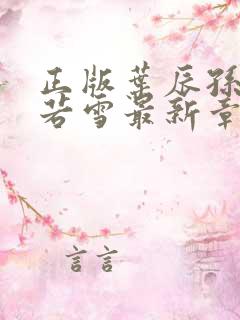 正版葉辰孫
若雪最新章
言言